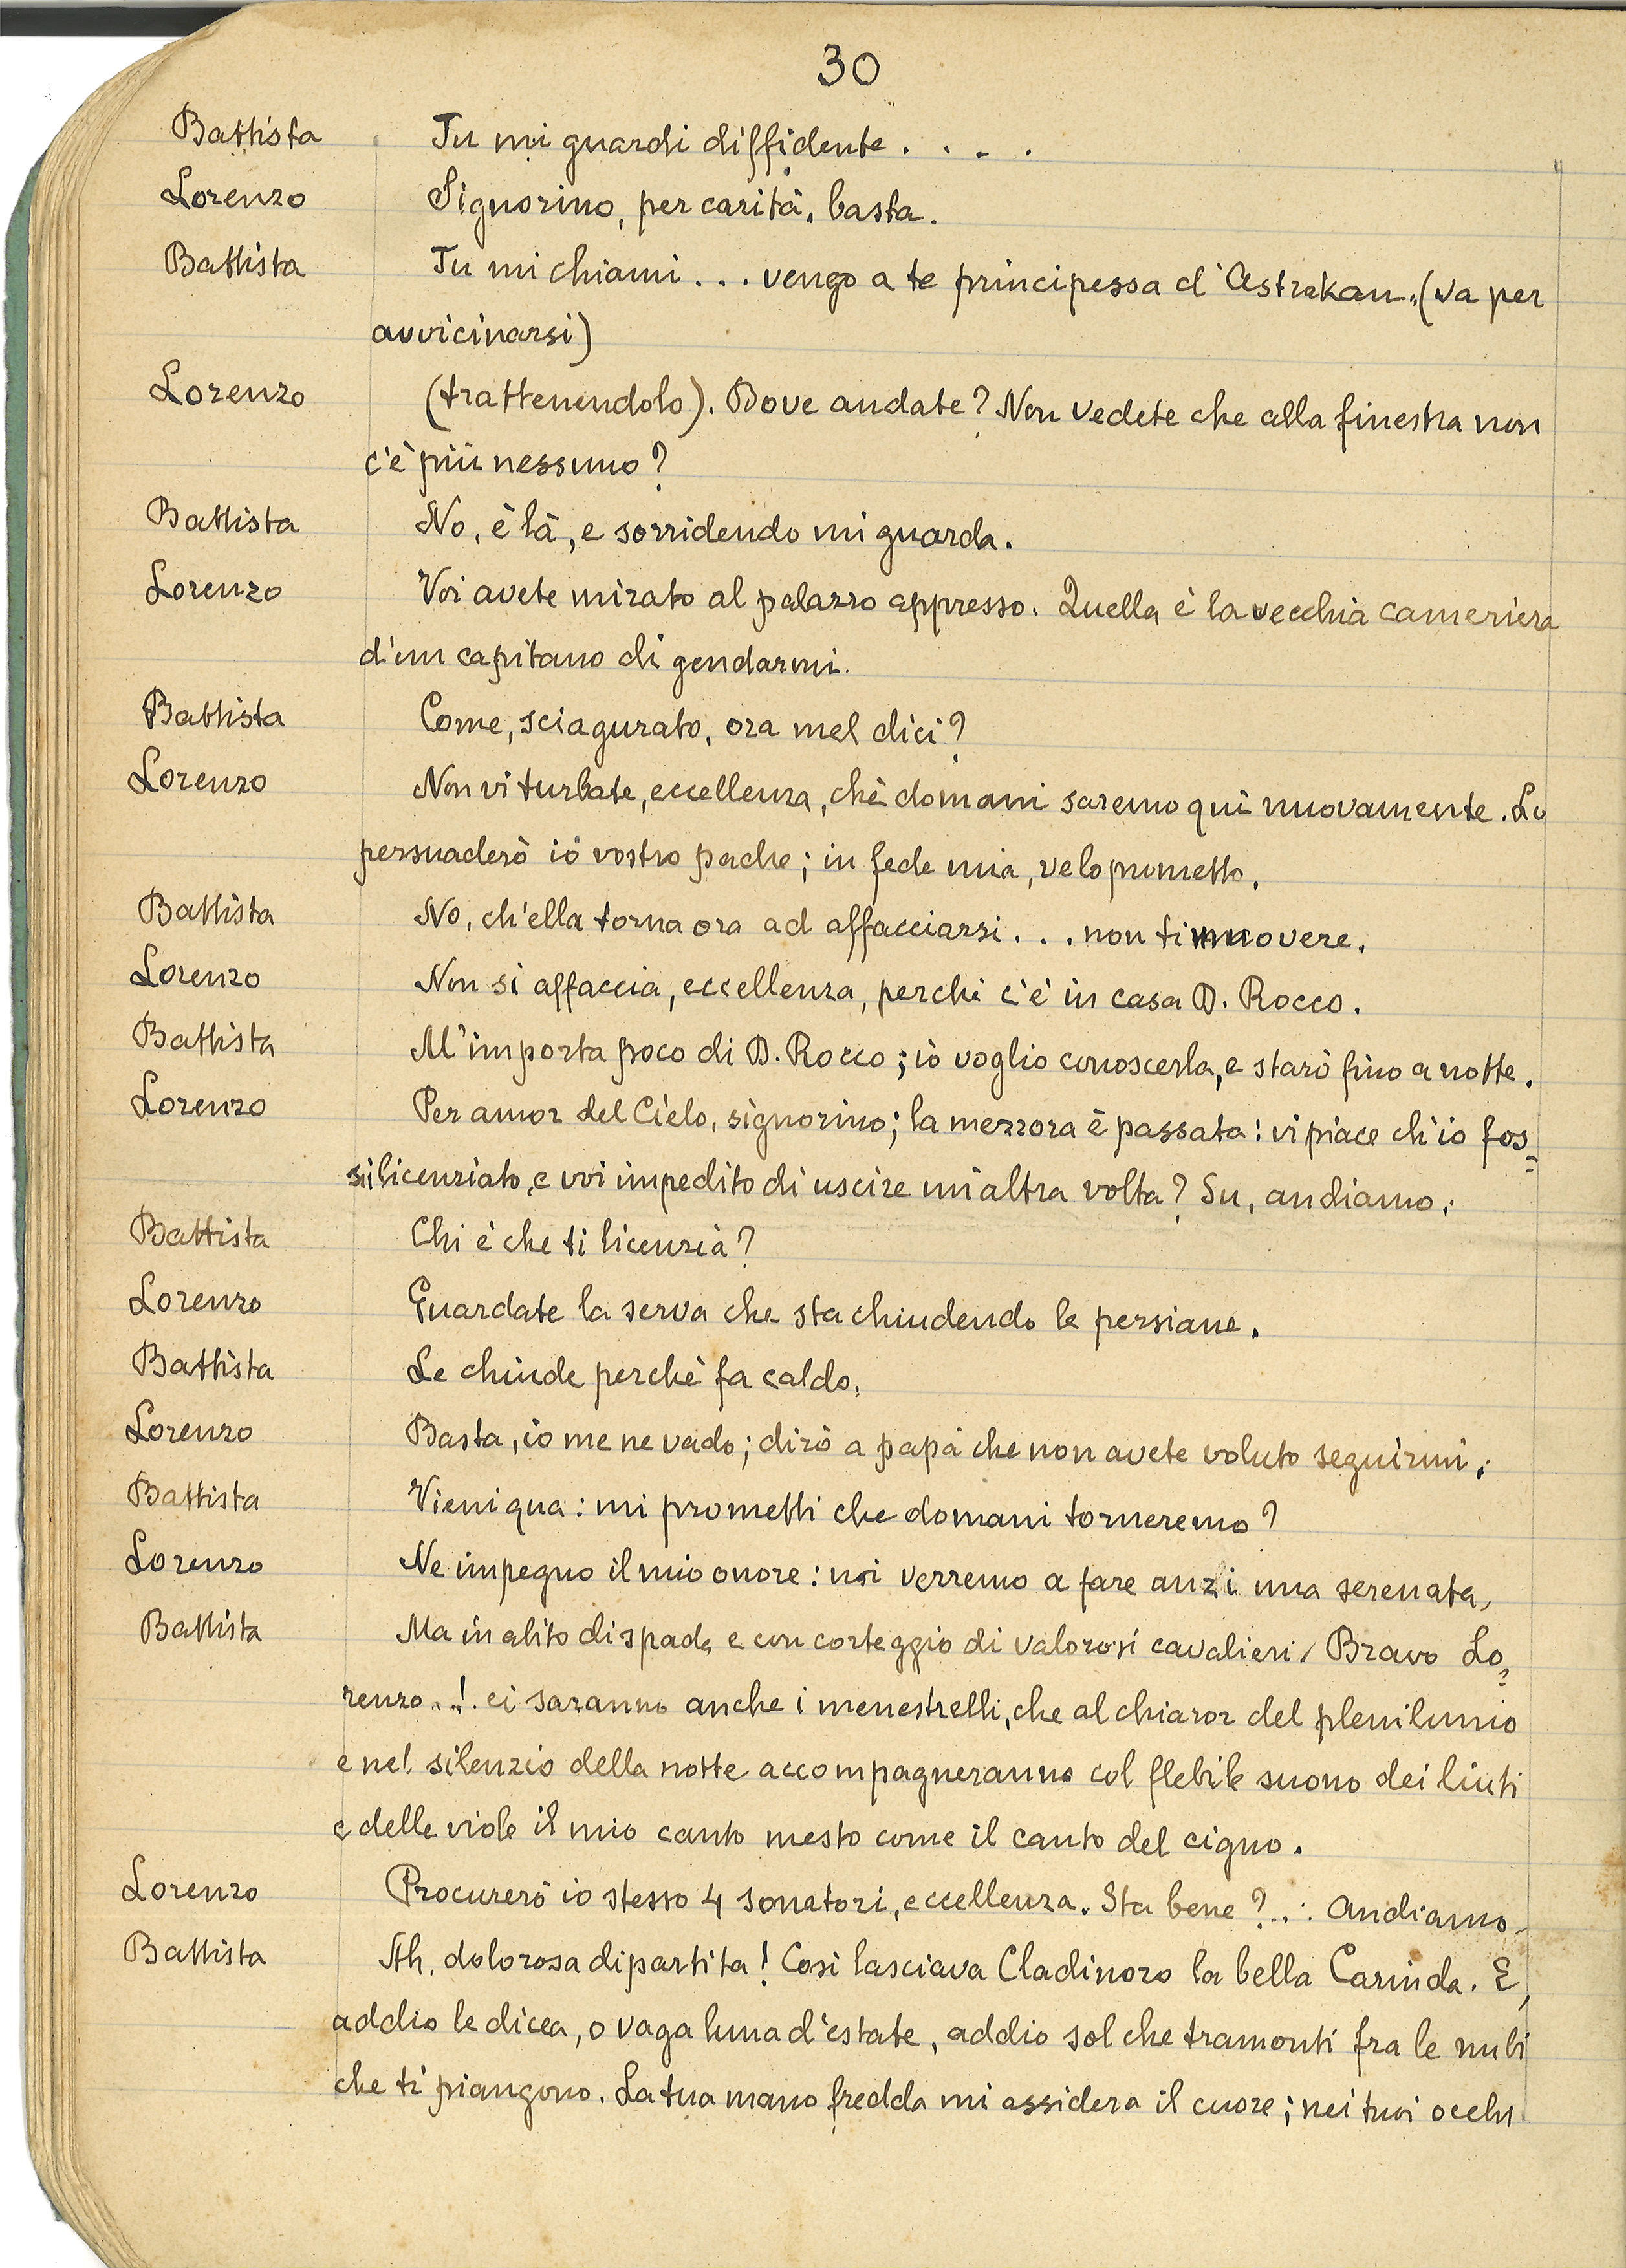 30
Battista Tu mi guardi diffidente. . . .
Lorenzo Signorino, per carità, basta.
Battista Tu mi chiami... vengo a te principessa d'Astrakan. (va per
avvicinarsi)
Lorenzo (trattenendolo). Dove andate? Non vedete che alla finestra non
c'è più nessuno?
Battista No, è là, e sorridendo mi guarda.
Lorenzo Voi avete mirato al palazzo appresso. Quella è la vecchia cameriera
d'un capitano di gendarmi.
Battista Come, sciagurato, ora mel dici?
Lorenzo Non vi turbate, eccellenza, chè domani saremo quì nuovamente. Lo
persuaderò io vostro padre; in fede mia, ve lo prometto.
Battista No, ch'ella torna ora ad affacciarsi... non ti muovere.
Lorenzo Non si affaccia, eccellenza, perchè c'è in casa D. Rocco.
Battista M'importa poco di D. Rocco; io voglio conoscerla, e starò fino a notte.
Lorenzo Per amor del Cielo, signorino; la mezzora è passata: vi piace ch'io fos=
si licenziato, e voi impedito di uscire un'altra volta? Su, andiamo.
Battista Chi è che ti licenzia?
Lorenzo Guardate la serva che sta chiudendo le persiane.
Battista Le chiude perchè fa caldo.
Lorenzo Basta, io me ne vado; dirò a papà che non avete voluto seguirmi.
Battista Vieni qua: mi prometti che domani torneremo?
Lorenzo Ne impegno il mio onore: noi verremo a fare anzi una serenata,
Battista Ma in abito di spada e con corteggio di valorosi cavalieri. Bravo Lo=
renzo..! ci saranno anche i menestrelli, che al chiaror del plenilunio
e nel silenzio della notte accompagneranno col flebile suono dei liuti
e delle viole il mio canto mesto come il canto del cigno.
Lorenzo Procurerò io stesso 4 sonatori, eccellenza. Sta bene?... Andiamo.
Battista Ah, dolorosa dipartita! Così lasciava Cladinoro la bella Carinda. E,
addio le dicea, o vaga luna d'estate, addio sol che tramonti fra le nubi
che ti piangono. La tua mano fredda mi assidera il cuore; nei tuoi occhi